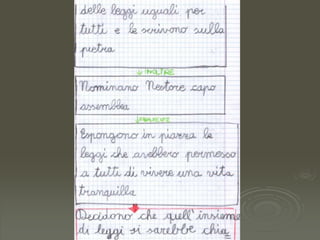 delle leggi uguali per
tutti e le scrivono sulla
pietra
INOLTRE
Nominano Nestore capo
assemblea
Espongono in piazza le
leggi che avrebbero permesso
a tutti di vivere una vita
tranquilla
Decidono che quell'insieme
di leggi si sarebbe chia